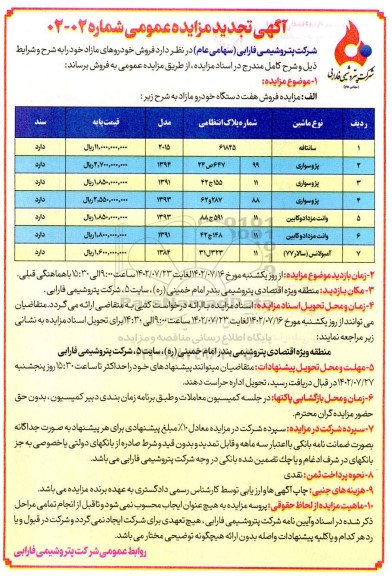 آگهی تجدید مزایده عمومی شماره ۰۲-۰۲
شرکت پتروشیمی فارابی
شرکت پتروشیمی فارابی (سهامی عام) در نظر دارد فروش خودروهای مازاد خود را به شرح و شرایط
ذیل و شرح کامل مندرج در اسناد مزایده، از طریق مزایده عمومی به فروش برساند:
۱-موضوع مزایده:
الف: مزایده فروش هفت دستگاه خودرو مازاد به شرح زیر:
ردیف نوع ماشین شماره پلاک انتظامی مدل قیمت پایه سند
۱ سانتافه ۶۱۸۲۵ ۲۰۱۵ ۱۱,۰۰۰,۰۰۰,۰۰۰ریال دارد
۲ پژو سواری ۹۹ ۶۴۷ص۲۴ ۱۳۹۴ ۲,۷۰۰,۰۰۰,۰۰۰ریال دارد
۳ پژو سواری ۱۱ ۱۵۵ج۴۲ ۱۳۹۱ ۱,۸۵۰,۰۰۰,۰۰۰ریال دارد
۴ پژو سواری ۸۸ ۲۸۷و۶۲ ۱۳۹۳ ۲,۵۵۰,۰۰۰,۰۰۰ریال دارد
۵ وانت مزدا دو کابین ۱۱ ۵۹۱ج۸۸ ۱۳۹۳ ۱,۸۵۰,۰۰۰,۰۰۰ریال دارد
۶ وانت مزدا دو کابین ۱۱ ۱۴۸ج۴۲ ۱۳۹۱ ۱,۸۰۰,۰۰۰,۰۰۰ریال دارد
۷ آمبولانس (سالار ۷۷) ۱۱ ۳۲۳ل۳۱ ۱۳۸۴ ۱,۶۰۰,۰۰۰,۰۰۰ریال دارد
۲-زمان بازدید موضوع مزایده: از روز یکشنبه مورخ ۱۴۰۲/۰۷/۱۶ لغایت ۱۴۰۲/۰۷/۲۳ ساعت ۹:۰۰ الی ۱۵:۳۰ با هماهنگی قبلی.
۳-مکان بازدید: منطقه ویژه اقتصادی پتروشیمی بندر امام خمینی (ره)، سایت ۵، شرکت پتروشیمی فارابی.
۴-زمان و محل تحویل اسناد مزایده: اسناد مزایده با ارائه درخواست کتبی به متقاضی ارائه می گردد. متقاضیان
می توانند از روز یکشنبه مورخ ۱۴۰۲/۰۷/۱۶ لغایت ۱۴۰۲/۰۷/۲۳ ساعت ۹:۰۰ الی ۱۴:۳۰ برای تحویل اسناد مزایده به نشانی
زیر مراجعه نمایند:
منطقه ویژه اقتصادی پتروشیمی بندر امام خمینی (ره)، سایت ۵، شرکت پتروشیمی فارابی
۵-مهلت و محل تحویل پیشنهادات: متقاضیان میتوانند پیشنهادهای خود را حداکثر تا ساعت ۱۵:۳۰ روز پنجشنبه
۱۴۰۲/۰۷/۲۷ در قبال دریافت رسید، تحویل اداره حراست دهند.
۶-زمان و محل بازگشایی پاکتها: در جلسه کمیسیون معاملات و طبق برنامه زمان بندی دبیر کمیسیون، بدون حق
حضور مزایده گران محترم.
۷-سپرده شرکت در مزایده: سپرده شرکت در مزایده معادل ۱۰٪ مبلغ پیشنهادی برای هر پیشنهاد به صورت جداگانه
بصورت ضمانت نامه بانکی با اعتبار سه ماهه و قابل تمدید و بدون قید و شرط صادره از بانکهای دولتی یا خصوصی به جز
بانکهای در شرف ادغام و یا چک تضمین شده بانکی در وجه شرکت پتروشیمی فارابی می باشد.
۸-نحوه پرداخت ثمن: نقدی
۹-هزینه های جنبی: چاپ آگهی ها و ارزیابی توسط کارشناس رسمی دادگستری به عهده برنده مزایده می باشد.
۱۰-ماهیت مزایده از لحاظ حقوقی: پروسه مزایده به هیچ عنوان ایجاب محسوب نمی شود و تا قبل از انجام تمامی مراحل
ذکر شده در اسناد و آیین نامه شرکت پتروشیمی فارابی، هیچ تعهدی برای شرکت ایجاد نمی گردد و شرکت در قبول و یا
رد هر کدام و یا کلیه پیشنهادات واصله بدون ارائه هیچگونه توضیحی مختار می باشد.
روابط عمومی شرکت پتروشیمی فارابی